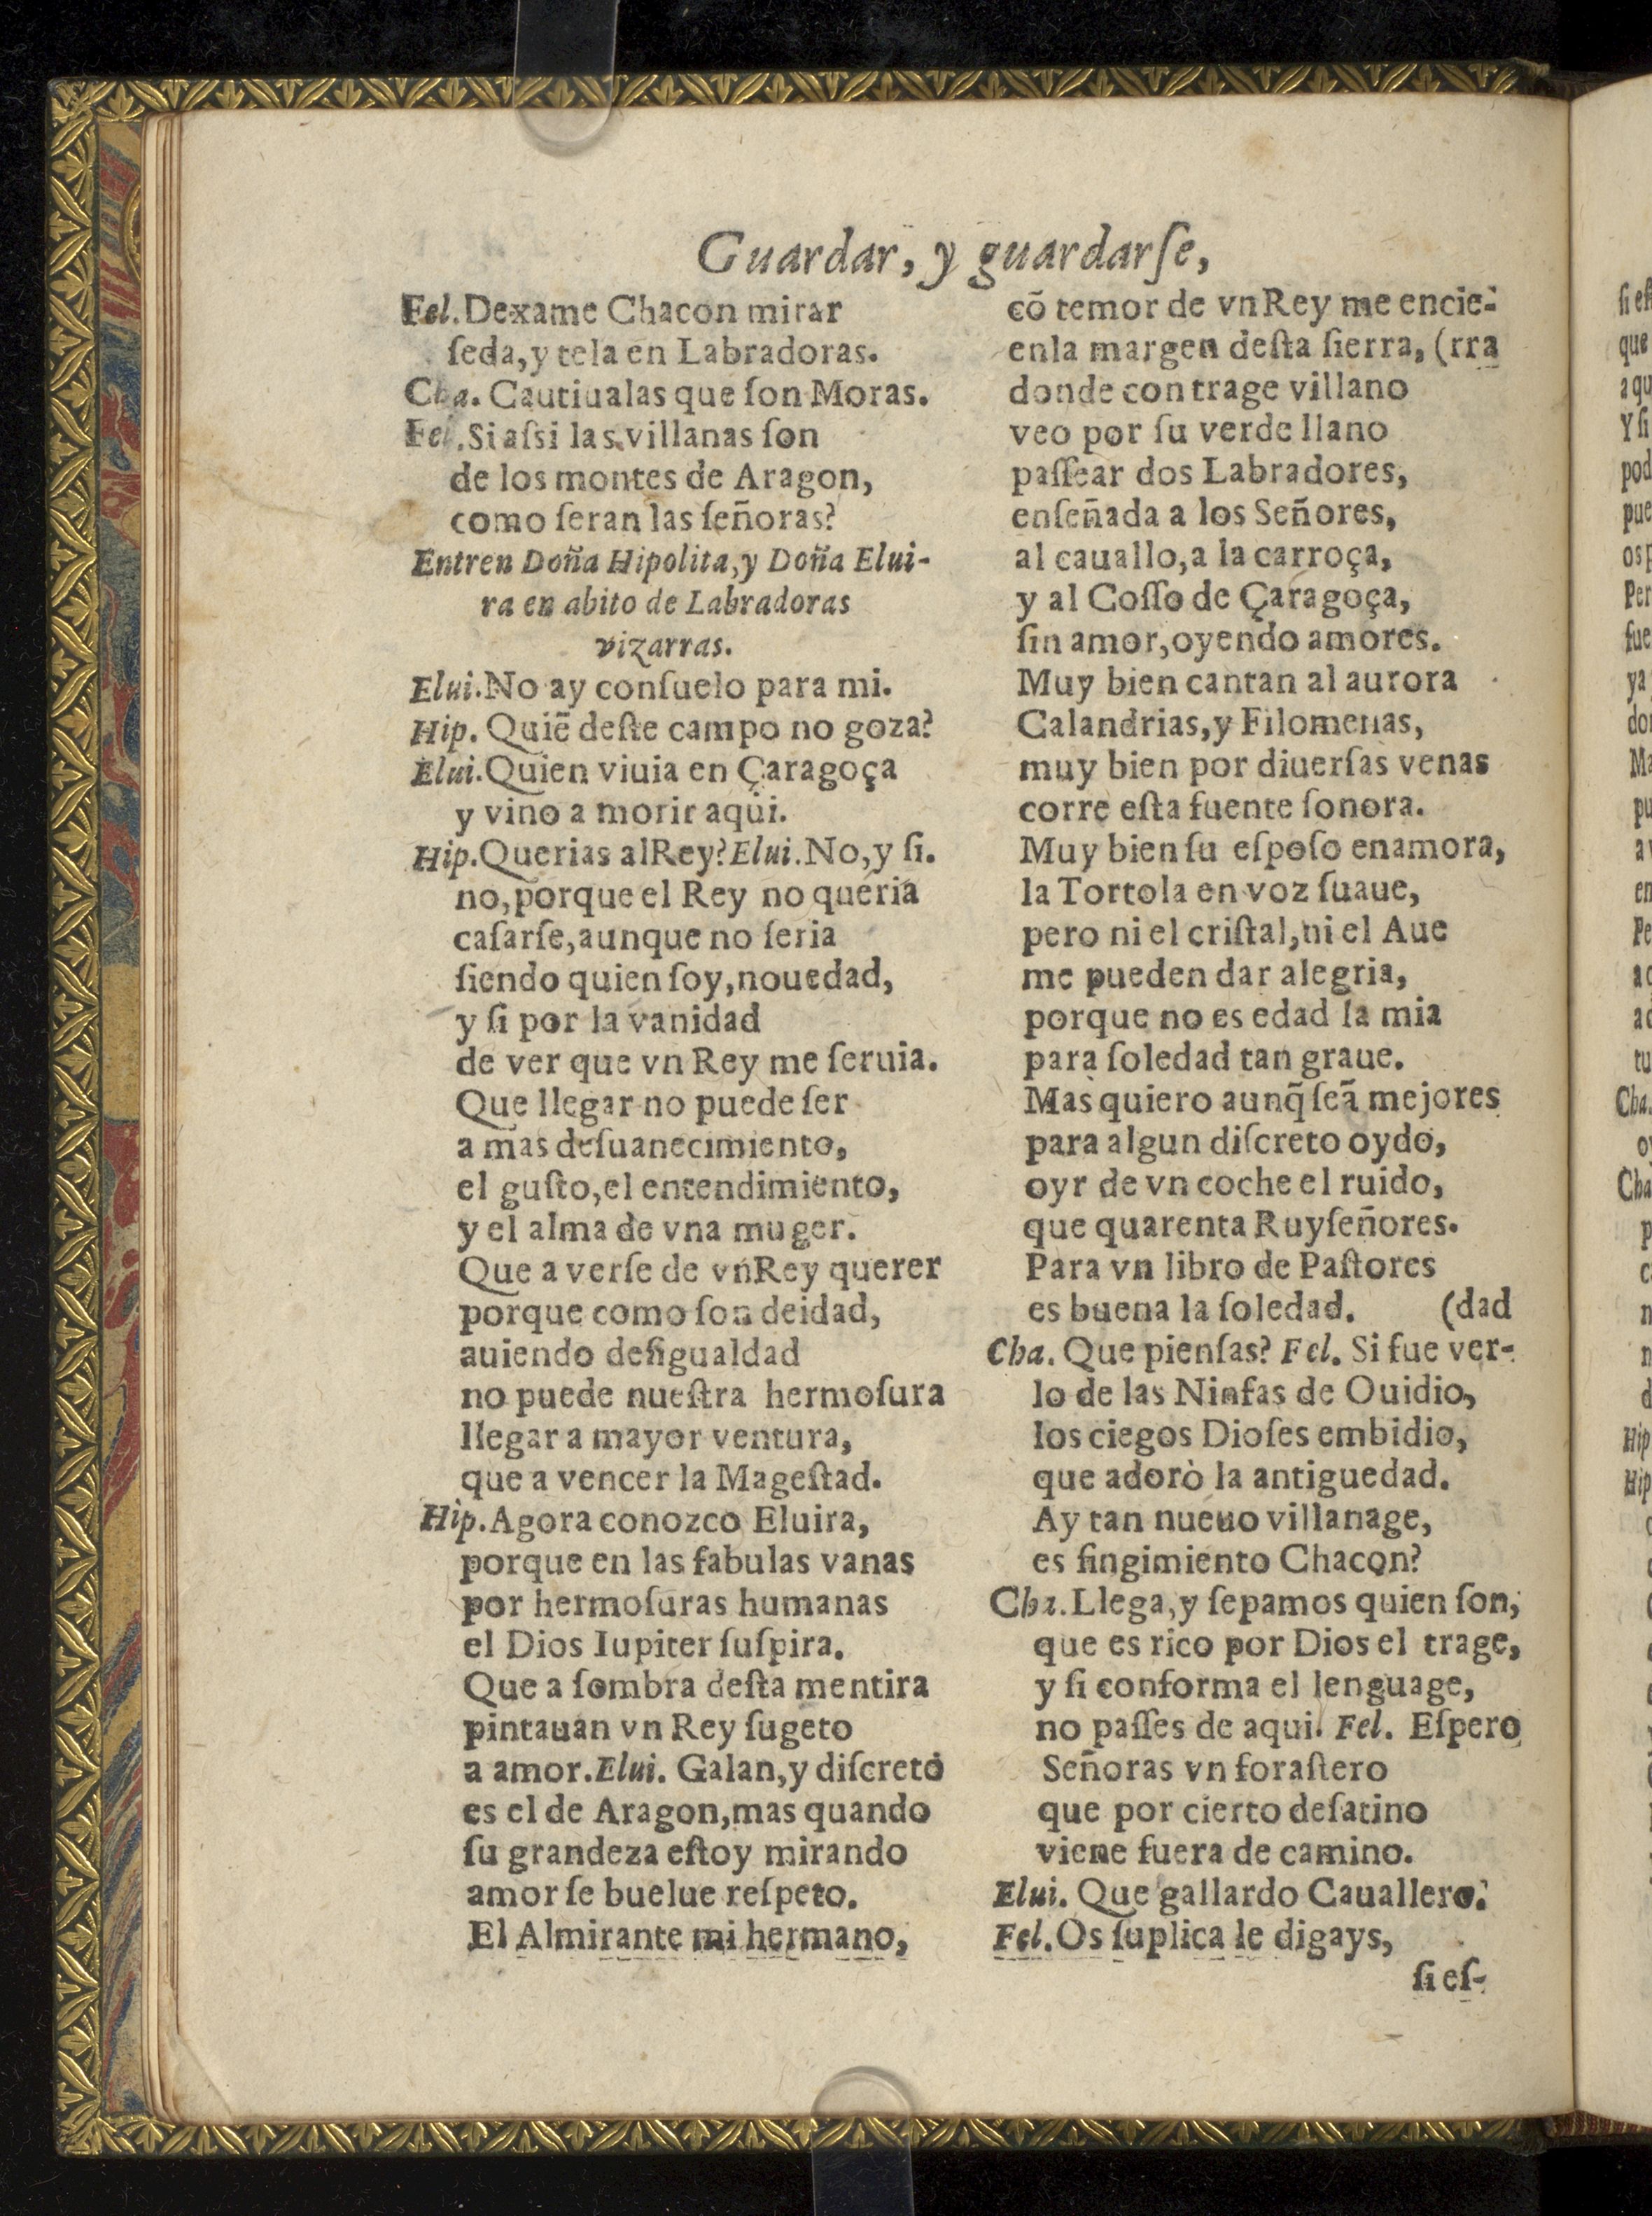 Guardar, y guardarſe,
Fel. Dexame Chacon mirar
ſeda, y tela en Labradoras.
Cha. Cautiualas que ſon Moras.
Fel. Si aſsi las villanas ſon
de los montes de Aragon,
como ſeran las ſeñoras?
Entren Doña Hipolita, y Doña Elui-
ra en abito de Labradoras
vizarras.
Elui. No ay conſuelo para mi.
Hip. Quiē deſte campo no goza?
Elui. Quien viuia en Çaragoça
y vino a morir aqui.
Hip. Querias al Rey? Elui. No, y ſi.
no, porque el Rey no queria
caſarſe, aunque no ſeria
ſiendo quien ſoy, nouedad,
y ſi por la vanidad
de ver que vn Rey me ſeruia.
Que llegar no puede ſer
a mas deſuanecimiento,
el guſto, el entendimiento,
y el alma de vna muger.
Que a verſe de vn Rey querer
porque como ſon deidad,
auiendo deſigualdad
no puede nueſtra hermoſura
llegar a mayor ventura,
que a vencer la Mageſtad.
Hip. Agora conozco Eluira,
porque en las fabulas vanas
por hermoſuras humanas
el Dios Iupiter ſuſpira.
Que a ſombra deſta mentira
pintauan vn Rey ſugeto
a amor. Elui. Galan, y diſcreto
es el de Aragon, mas quando
ſu grandeza eſtoy mirando
amor ſe buelue reſpeto.
El Almirante mi hermano,
cõ temor de vn Rey me encie-
en la margen deſta ſierra, (rra
donde con trage villano
veo por ſu verde llano
paſſear dos Labradores,
enſeñada a los Señores,
al cauallo, a la carroça,
y al Coſſo de Çaragoça,
ſin amor, oyendo amores.
Muy bien cantan al aurora
Calandrias, y Filomenas,
muy bien por diuerſas venas
corre eſta fuente ſonora.
Muy bien ſu eſpoſo enamora,
la Tortola en voz ſuaue,
pero ni el criſtal, ni el Aue
me pueden dar alegria,
porque no es edad la mia
para ſoledad tan graue.
Mas quiero aunq̃ ſeã mejores
para algun diſcreto oydo,
oyr de vn coche el ruido,
que quarenta Ruyſeñores.
Para vn libro de Paſtores
es buena la ſoledad. (dad
Cha. Que pienſas? Fel. Si fue ver-
lo de las Ninfas de Ouidio,
los ciegos Dioſes embidio,
que adorò la antiguedad.
Ay tan nueuo villanage,
es fingimiento Chacon?
Cha. Llega, y ſepamos quien ſon,
que es rico por Dios el trage,
y ſi conforma el lenguage,
no paſſes de aqui. Fel. Eſpero
Señoras vn foraſtero
que por cierto deſatino
viene fuera de camino.
Elui. Que gallardo Cauallero.
Fel. Os ſuplica le digays,
ſi eſ-